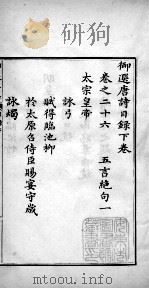 御選唐詩目錄下卷
卷之二十六　五言絕句一
太宗皇帝
詠弓
賦得臨池柳
於太原召侍臣賜宴守歲
詠燭
mtoou.info
mtoou.info